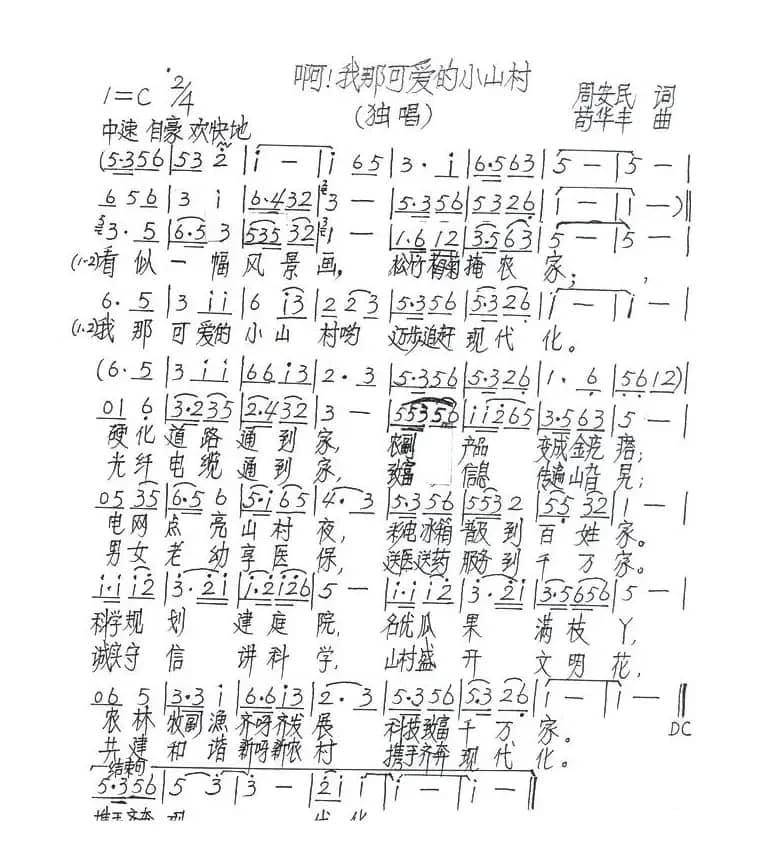 啊!我那可爱的小山村
1=C 2/4
周安民 词
(独唱)
苟华丰 曲
中速 自豪 欢快地
(5·356 | 53 2 | i — | i 65 | 3· i | 6·563 | 5 — | 5 — |
656 | 3 i | 6·432 | 3 — | 5·356 | 5326 | i — | i —)‖
3·5 | 6·5 3 | 535 32 | 1 — | 1·6 12 | 3·5 63 | 5 — | 5 — |
(1·2)看似一幅风景画, 松竹梅菊掩农家;,
6·5 | 3 i i | 6 i3 | 2 23 | 5·356 | 5·326 | i — | i — |
(1·2)我那可爱的小山村哟 迈步追赶现代化。
(6·5 | 3 i i | 66 i3 | 2·3 | 5·356 | 5·326 | 1·6 | 5612)|
01 6 | 3·235 | 2·432 | 3 — | 55356 | i i265 | 3·563 | 5 — |
硬化道路通到家, 农副产品变成金疙瘩;
光纤电缆通到家, 致富信息传遍山旮旯;
05 35 | 6·5 6 | 5·i65 | 4·3 | 5·356 | 5532 | 55 32 | 1 — |
电网点亮山村夜, 彩电冰箱普及到百姓家。
男女老幼享医保, 送医送药服务到千万家。
i·i i2 | 3·2i | i·2i26 | 5 — | i·i i2 | 3·2i | 3·5656 | 5 — |
科学规划建庭院, 名优瓜果满枝丫,
诚实守信讲科学, 山村盛开文明花,
06 5 | 3·3 i | 6·6 i3 | 2·3 | 5·356 | 5·3 26 | i — | i — ‖
农林牧副渔齐呀齐发展 科技致富千万家。 DC
共建和谐新呀新农村 携手齐奔现代化。
结束句
5·356 | 5 3 | 3 — | 2i i | i — | i — |
携手齐奔现 代化